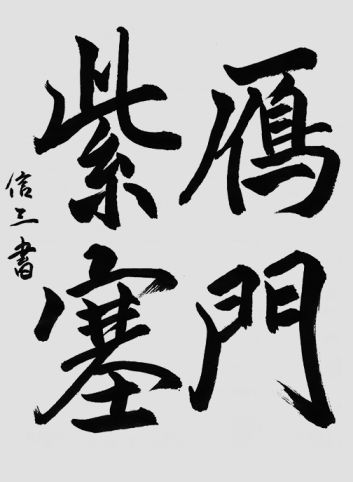 鴈門
紫塞
信三書